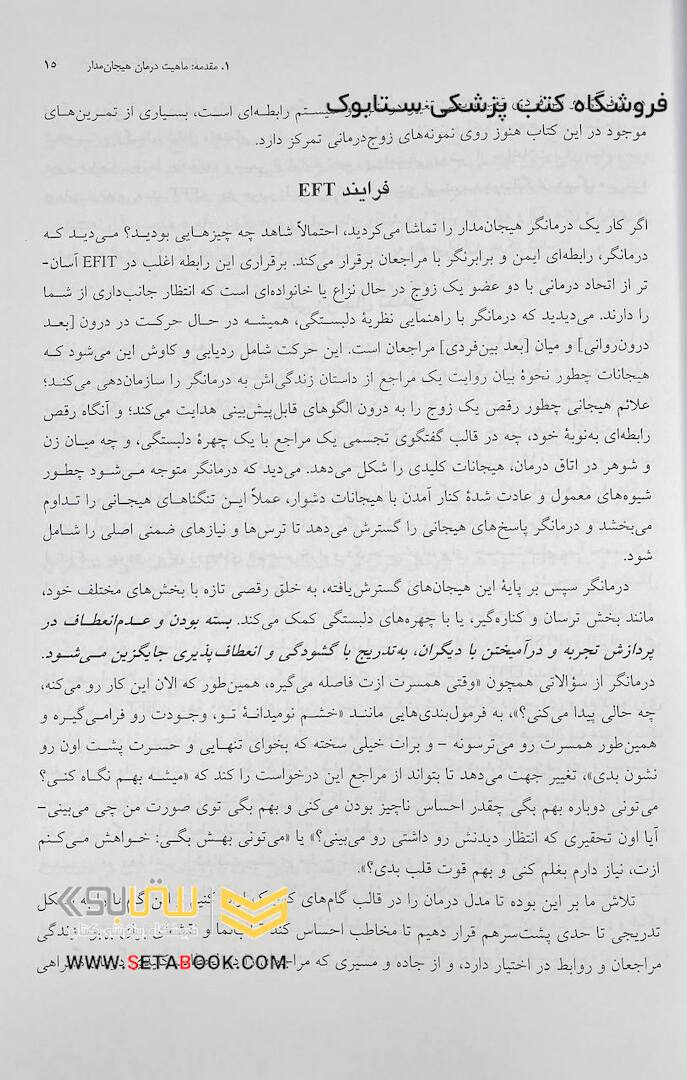 ۱. مقدمه: ماهیت درمان هیجان‌مدار ۱۵
فروشگاه کتب پزشکی ستابوک
سیستم رابطه‌ای است، بسیاری از تمرین‌های
موجود در این کتاب هنوز روی نمونه‌های زوج‌درمانی تمرکز دارد.
فرایند EFT
اگر کار یک درمانگر هیجان‌مدار را تماشا می‌کردید، احتمالاً شاهد چه چیزهایی بودید؟ می‌دید که
درمانگر، رابطه‌ای ایمن و برابرنگر با مراجعان برقرار می‌کند. برقراری این رابطه اغلب در EFIT آسان-
تر از اتحاد درمانی با دو عضو یک زوج در حال نزاع یا خانواده‌ای است که انتظار جانب‌داری از شما
را دارند. می‌دیدید که درمانگر با راهنمایی نظریهٔ دلبستگی، همیشه در حال حرکت در درون [بعد
درون‌روانی] و میان [بعد بین‌فردی] مراجعان است. این حرکت شامل ردیابی و کاوش این می‌شود که
هیجانات چطور نحوهٔ بیان روایت یک مراجع از داستان زندگی‌اش به درمانگر را سازمان‌دهی می‌کند؛
علائم هیجانی چطور رقص یک زوج را به درون الگوهای قابل‌پیش‌بینی هدایت می‌کند؛ و آنگاه رقص
رابطه‌ای به‌نوبهٔ خود، چه در قالب گفتگوی تجسمی یک مراجع با یک چهرهٔ دلبستگی، و چه میان زن
و شوهر در اتاق درمان، هیجانات کلیدی را شکل می‌دهد. می‌دید که درمانگر متوجه می‌شود چطور
شیوه‌های معمول و عادت شدهٔ کنار آمدن با هیجانات دشوار، عملاً این تنگناهای هیجانی را تداوم
می‌بخشد و درمانگر پاسخ‌های هیجانی را گسترش می‌دهد تا ترس‌ها و نیازهای ضمنی اصلی را شامل
شود.
درمانگر سپس بر پایهٔ این هیجان‌های گسترش‌یافته، به خلق رقصی تازه با بخش‌های مختلف خود،
مانند بخش ترسان و کناره‌گیر، یا با چهره‌های دلبستگی کمک می‌کند. بسته بودن و عدم‌انعطاف در
پردازش تجربه و درآمیختن با دیگران، به‌تدریج با گشودگی و انعطاف‌پذیری جایگزین می‌شود.
درمانگر از سؤالاتی همچون «وقتی همسرت ازت فاصله می‌گیره، همین‌طور که الان این کار رو می‌کنه،
چه حالی پیدا می‌کنی؟»، به فرمول‌بندی‌هایی مانند «خشم نومیدانهٔ تو، وجودت رو فرامی‌گیره و
همین‌طور همسرت رو می‌ترسونه - و برات خیلی سخته که بخوای تنهایی و حسرت پشت اون رو
نشون بدی»، تغییر جهت می‌دهد تا بتواند از مراجع این درخواست را کند که «میشه بهم نگاه کنی؟
می‌تونی دوباره بهم بگی چقدر احساس ناچیز بودن می‌کنی و بهم بگی توی صورت من چی می‌بینی-
آیا اون تحقیری که انتظار دیدنش رو داشتی رو می‌بینی؟» یا «می‌تونی بهش بگی: خواهش می‌کنم
ازت، نیاز دارم بغلم کنی و بهم قوت قلب بدی؟».
تلاش ما بر این بوده تا مدل درمان را در قالب گام‌های
تدریجی تا حدی پشت‌سرهم قرار دهیم تا مخاطب احساس کند
مراجعان و روابط در اختیار دارد، و از جاده و مسیری که
ستابوک
WWW.SETABOOK.COM